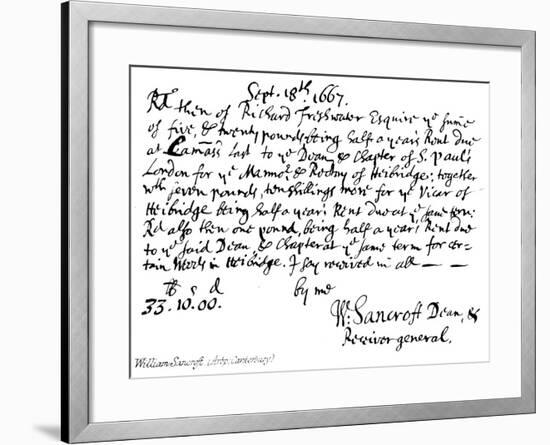 Sept. 18th. 1667.
Rd then of Richard Freshwater Esquire ye sume
of five, & twenty pounds being half a year's Rent due
at Lammass last to ye Dean & Chapter of S. Paul's
London for ye Mannor & Rectory of Heibridge: together
with seven pounds, ten shillings more for ye Vicar of
Heibridge being half a year's Rent due at ye same term:
Rd also then one pound, being half a year's Rent due
to ye said Dean & Chapter at ye same term for cer-
tain Woods in Heibridge. I say received in all — —
lb s d by me
33. 10. 00.
W: Sancroft Dean, &
Receiver general.
William Sancroft. (Arbp. Canterbury)